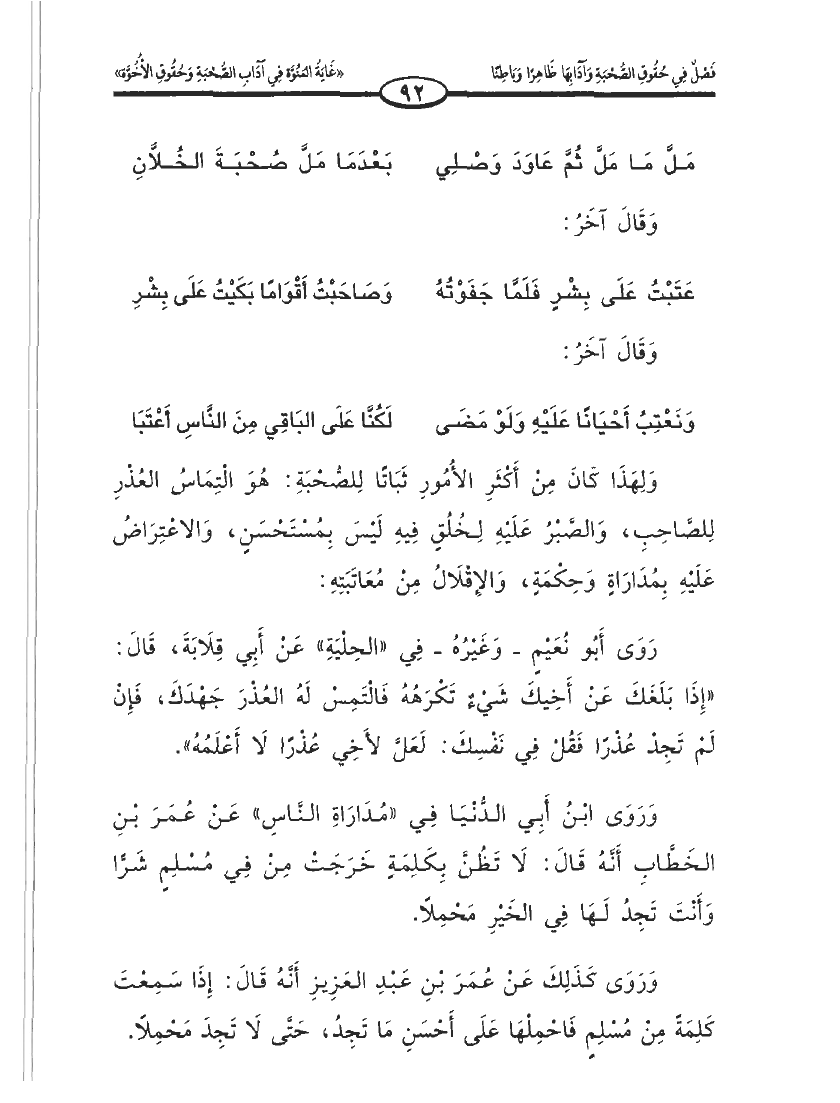 فَصْلٌ فِي حُقُوقِ الصُّحْبَةِ وَآدَابِهَا ظَاهِرًا وَبَاطِنًا «غَايَةُ المَنُوَّة فِي آدَابِ الصُّحْبَةِ وَحُقُوقِ الأُخُوَّة»
٩٢
مَـلَّ مَـا مَلَّ ثُمَّ عَاوَدَ وَصْـلِي بَـعْـدَمَا مَلَّ صُـحْـبَـةَ الـخُـلَّانِ
وَقَالَ آخَرُ:
عَتَبْتُ عَلَى بِشْرٍ فَلَمَّا جَفَوْتُهُ وَصَاحَبْتُ أَقْوَامًا بَكَيْتُ عَلَى بِشْرِ
وَقَالَ آخَرُ:
وَنَعْتِبُ أَحْيَانًا عَلَيْهِ وَلَوْ مَضَى لَكُنَّا عَلَى البَاقِي مِنَ النَّاسِ أَعْتَبَا
وَلِهَذَا كَانَ مِنْ أَكْثَرِ الأُمُورِ ثَبَاتًا لِلصُّحْبَةِ: هُوَ الْتِمَاسُ العُذْرِ
لِلصَّاحِبِ، وَالصَّبْرُ عَلَيْهِ لِخُلُقٍ فِيهِ لَيْسَ بِمُسْتَحْسَنٍ، وَالاعْتِرَاضُ
عَلَيْهِ بِمُدَارَاةٍ وَحِكْمَةٍ، وَالإِقْلَالُ مِنْ مُعَاتَبَتِهِ:
رَوَى أَبُو نُعَيْمٍ - وَغَيْرُهُ - فِي «الحِلْيَةِ» عَنْ أَبِي قِلَابَةَ، قَالَ:
«إِذَا بَلَغَكَ عَنْ أَخِيكَ شَيْءٌ تَكْرَهُهُ فَالْتَمِسْ لَهُ العُذْرَ جَهْدَكَ، فَإِنْ
لَمْ تَجِدْ عُذْرًا فَقُلْ فِي نَفْسِكَ: لَعَلَّ لأَخِي عُذْرًا لَا أَعْلَمُهُ».
وَرَوَى ابْنُ أَبِي الدُّنْيَا فِي «مُدَارَاةِ النَّاسِ» عَنْ عُمَرَ بْنِ
الخَطَّابِ أَنَّهُ قَالَ: لَا تَظُنَّ بِكَلِمَةٍ خَرَجَتْ مِنْ فِي مُسْلِمٍ شَرًّا
وَأَنْتَ تَجِدُ لَهَا فِي الخَيْرِ مَحْمِلًا.
وَرَوَى كَذَلِكَ عَنْ عُمَرَ بْنِ عَبْدِ العَزِيزِ أَنَّهُ قَالَ: إِذَا سَمِعْتَ
كَلِمَةً مِنْ مُسْلِمٍ فَاحْمِلْهَا عَلَى أَحْسَنِ مَا تَجِدُ، حَتَّى لَا تَجِدَ مَحْمِلًا.